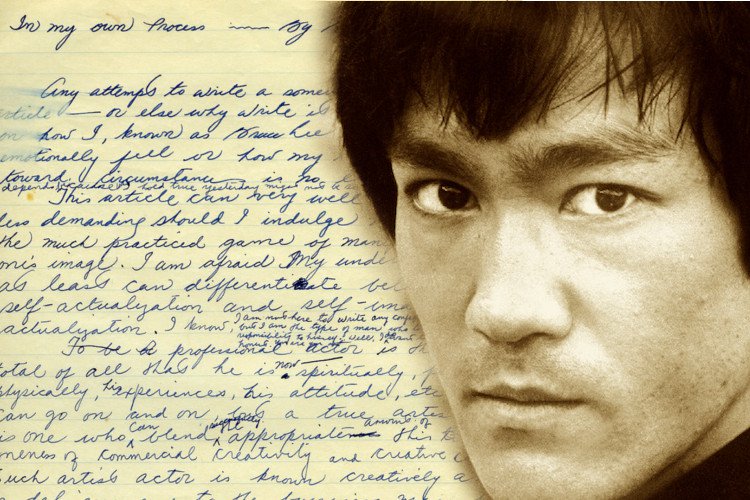 In my own Process — By
Any attempts to write a some
article — or else why write it
on how I, known as Bruce Lee
emotionally feel or how my
toward circumstance is so
depends hold true yesterday might not be so
This article can very well
less demanding should I indulge
the much practiced game of man
one's image. I am afraid My unde
at least can differentiate be
self-actualization and self-ima
I am not here to write any conf
actualization. I know, but I am the type of man who
responsibility to himself. Well, I
honest. You are
To be a professional actor is th
total of all that he is now spiritually, p
physically, his experiences, his attitude, etc
can go on and on, but a true artis
is one who can blend appropriate amount of this
oneness of commercial creativity and creative c
Such artist actor is known creatively a